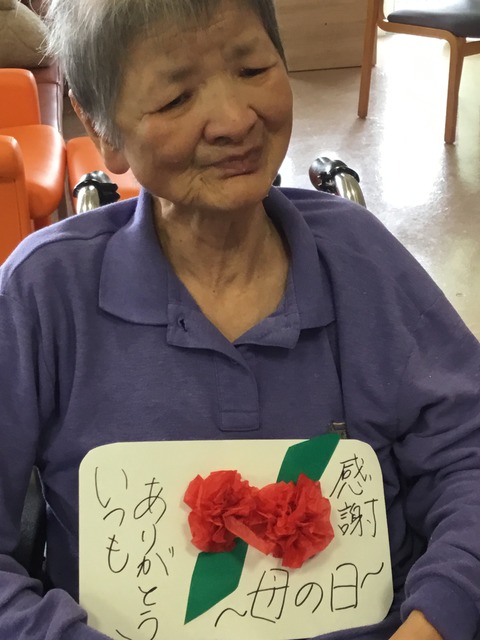 感謝
～母の日～
いつも
ありがとう